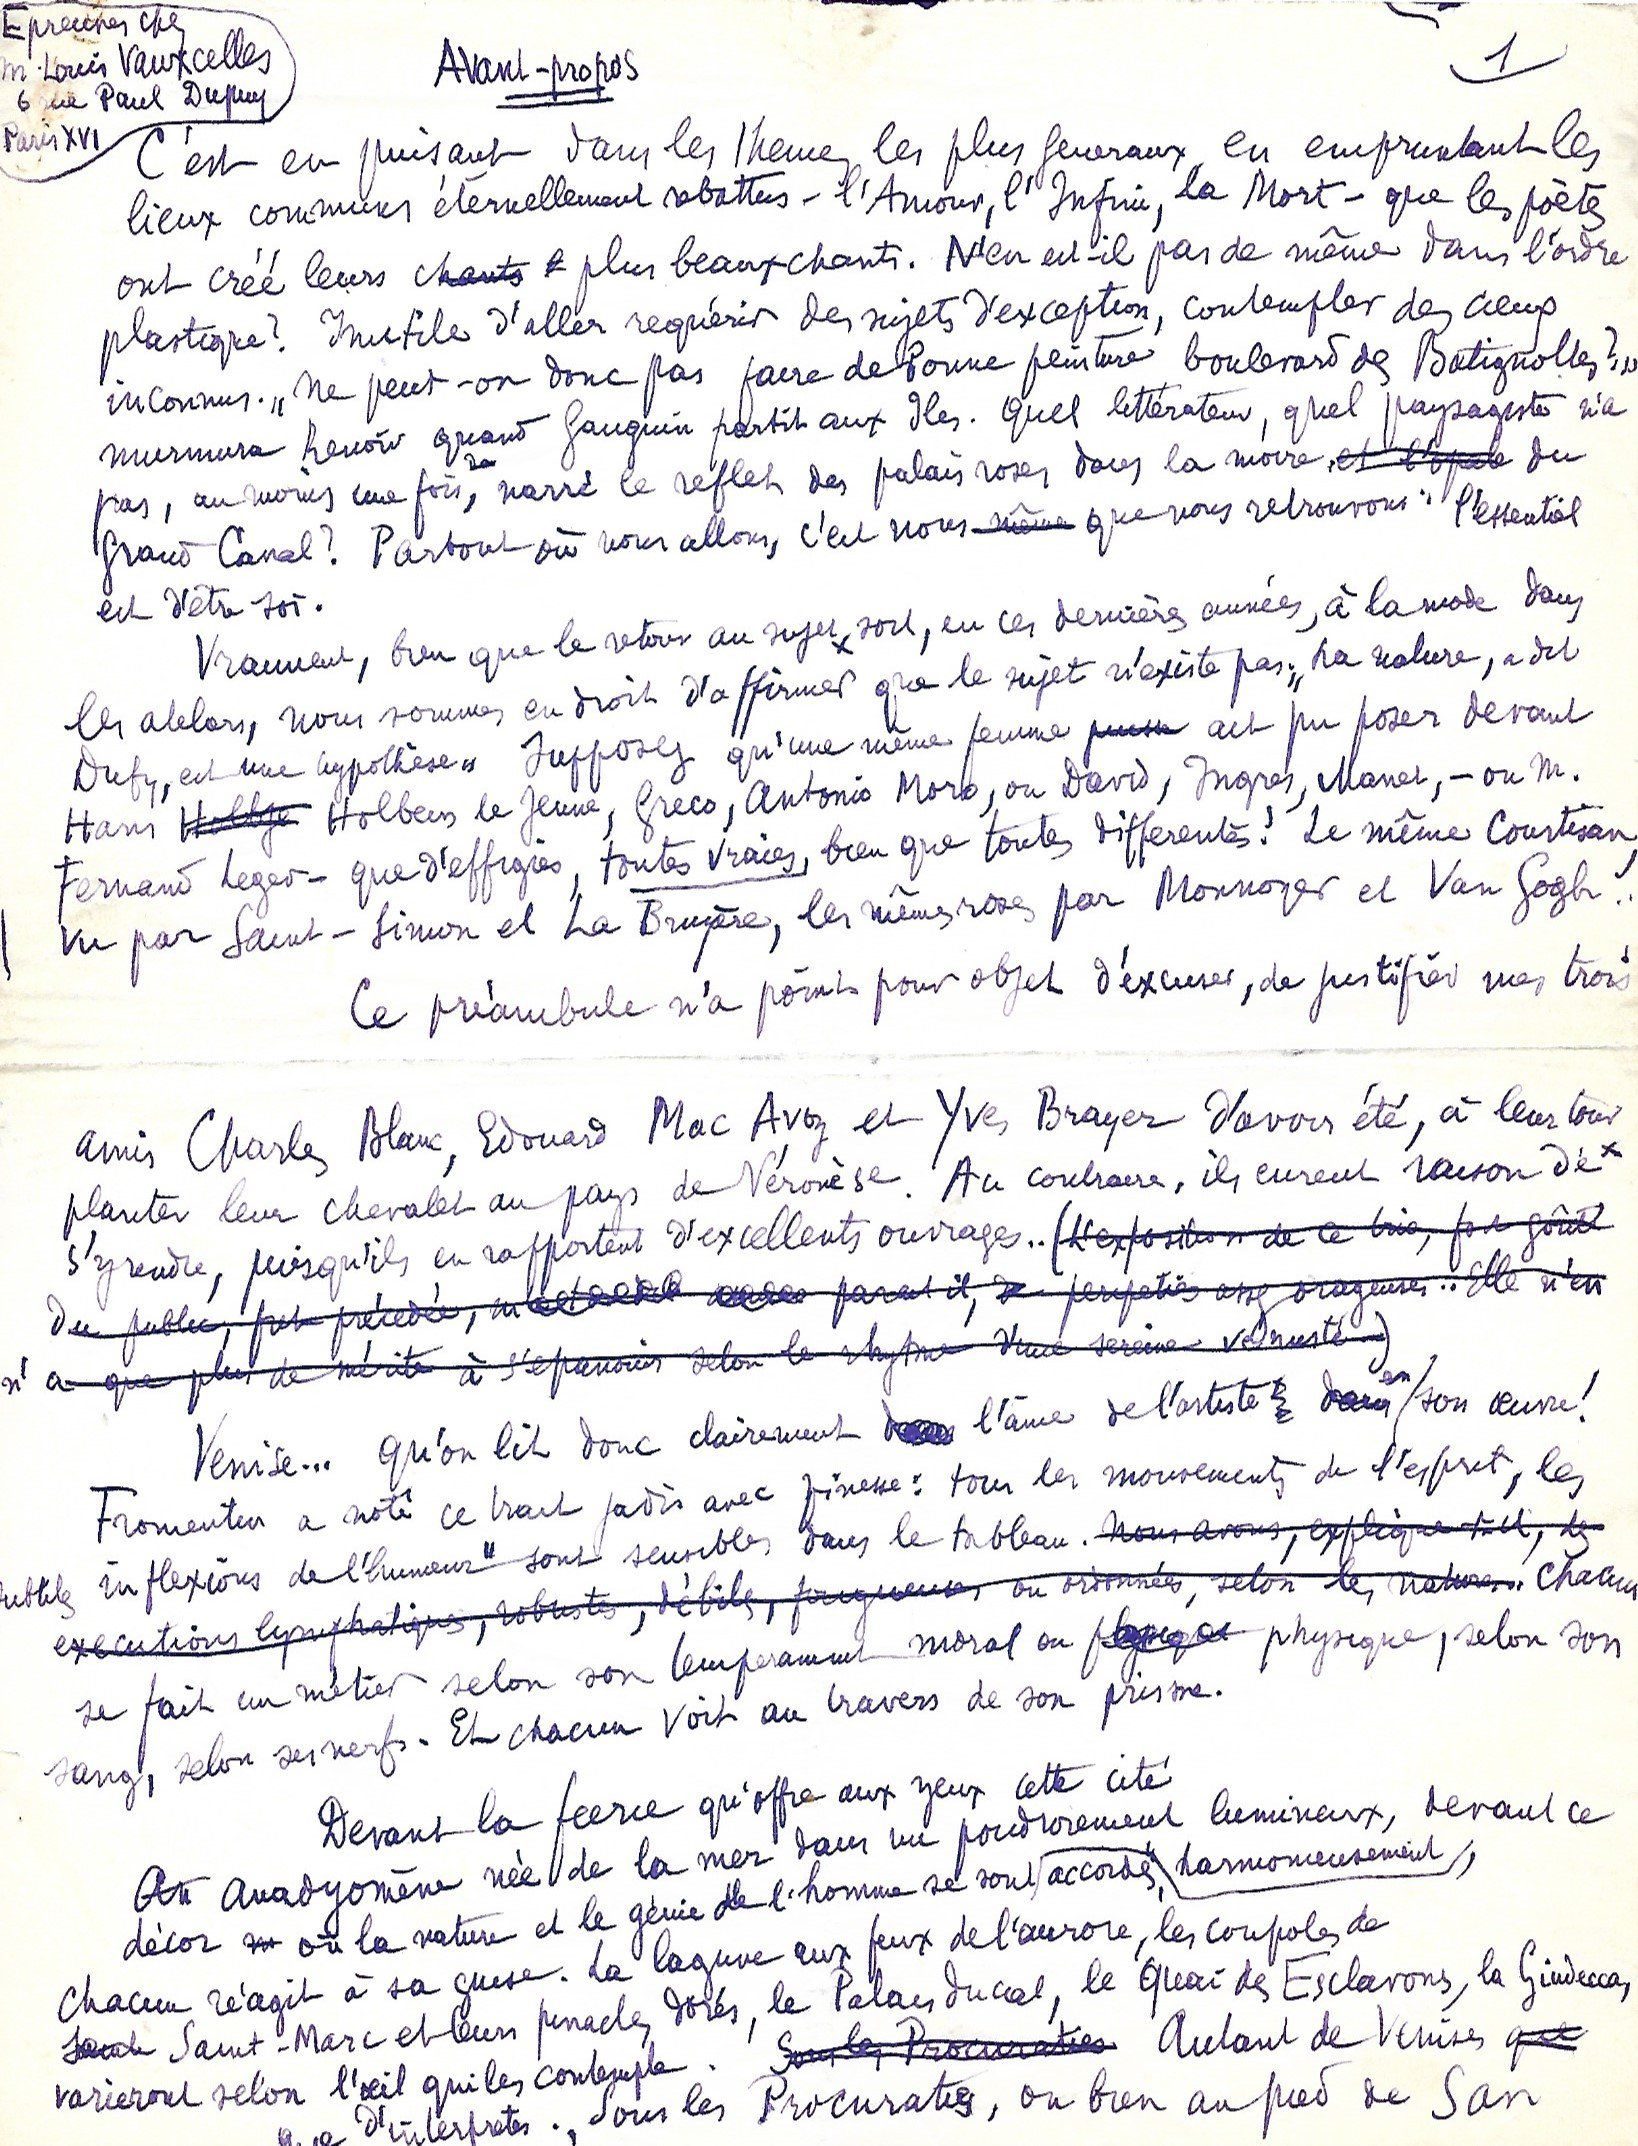 Epreuves chez
M. Louis Vauxcelles
6 rue Paul Dupuy
Paris XVI
Avant-propos
1
C'est en puisant dans les themes les plus generaux, en empruntant les
lieux communs éternellement rebattus - l'Amour, l'Infini, la Mort - que les poètes
ont créé leurs chants plus beaux chants. N'en est-il pas de même dans l'ordre
plastique? Inutile d'aller requérir des sujets d'exception, contempler des cieux
inconnus. "Ne peut-on donc pas faire de bonne peinture boulevard des Batignolles?"
murmura Renoir quand Gauguin partit aux Iles. Quel littérateur, quel paysagiste n'a
pas, au moins une fois, narré le reflet des palais roses dans la moire et l'opale du
Grand Canal? Partout où nous allons, c'est nous-même que nous retrouvons : l'essentiel
est d'être soi.
Vraiment, bien que le retour au sujet x soit, en ces dernières années, à la mode dans
les ateliers, nous sommes en droit d'affirmer que le sujet n'existe pas : "La nature, a dit
Dufy, est une hypothèse" Supposez qu'une même femme puisse ait pu poser devant
Hans Holbein le Jeune, Greco, Antonio Moro, ou David, Ingres, Manet, - ou M.
Fernand Leger - que d'effigies, toutes vraies, bien que toutes differentes! Le même Courtisan,
vu par Saint-Simon et La Bruyère, les mêmes roses par Monnoyer et Van Gogh!..
Ce préambule n'a point pour objet d'excuser, de justifier mes trois
amis Charles Blanc, Edouard Mac Avoy et Yves Brayer d'avoir été, à leur tour
planter leur chevalet au pays de Véronèse. Au contraire, ils eurent raison de x
s'y rendre, puisqu'ils en rapportent d'excellents ouvrages.. (L'exposition de ce trio, fort goûté
du public, fut précédée, parait-il, de peripeties assez orageuses.. Elle n'en
n'a que plus de mérite à s'epanouir selon le rhytme d'une sereine venusté)
Venise... Qu'on lit donc clairement dans l'âme de l'artiste dans en son œuvre!
Fromentin a noté ce trait jadis avec finesse : tous les mouvements de l'esprit, les
subtiles inflexions de l'humeur" sont sensibles dans le tableau. Nous avons, explique-t-il, des
executions lymphatiques, robustes, débiles, fougueuses ou ordonnées, selon les natures.. Chacun
se fait un métier selon son temperament moral ou physique, selon son
sang, selon ses nerfs. Et chacun voit au travers de son prisme.
Devant la feerie qu'offre aux yeux cette cité
Anadyomène née de la mer dans un poudroiement lumineux, devant ce
décor où la nature et le génie de l'homme se sont accordés, harmonieusement,
chacun réagit à sa guise. La lagune aux feux de l'aurore, les coupoles de
Saint-Marc et leurs pinacles dorés, le Palais ducal, le Quai des Esclavons, la Giudecca,
varieront selon l'œil qui les contemple. Sous les Procuraties Autant de Venises que
que d'interpretes. Sous les Procuraties, ou bien au pied de San